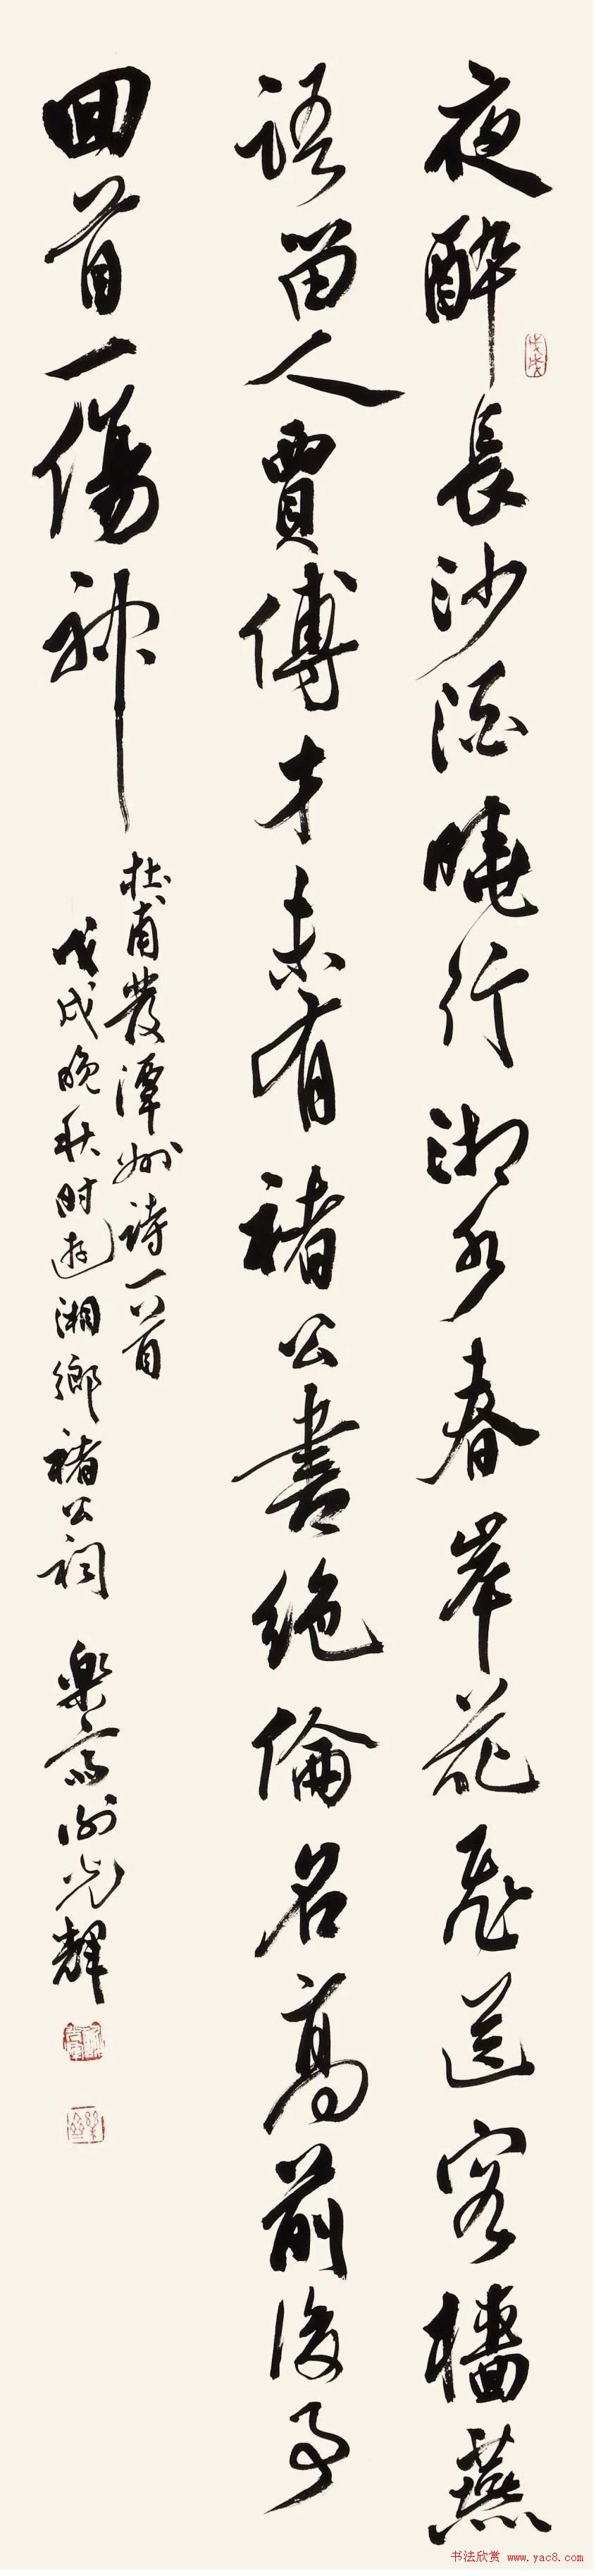 夜醉長沙酒曉行湘水春岸花飛送客檣燕
語留人賈傅才未有褚公書絶倫名高前後事
回首一傷神
杜甫發潭州詩一首
戊戌晚秋时遊湘鄉褚公祠 樂齋谢光輝
戊戌
书法欣赏 www.yac8.com